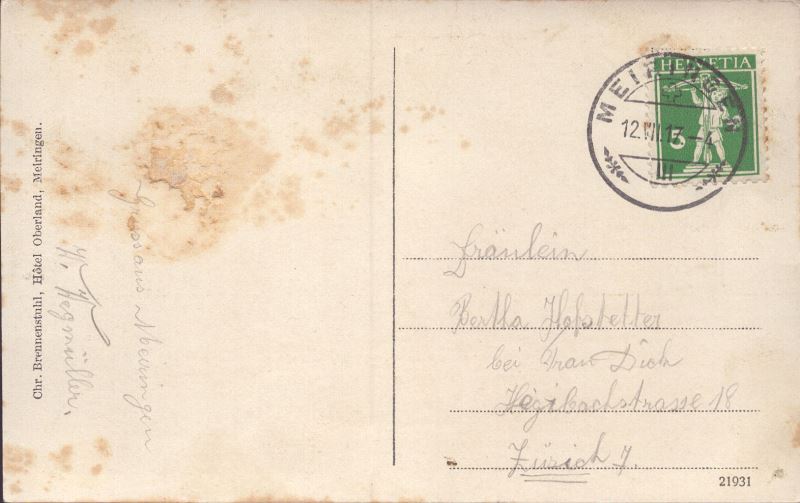 Chr. Brennenstuhl, Hôtel Oberland, Meiringen.
Gruss aus Meiringen
H. Hegmüller.
HELVETIA
5
MEIRINGEN
12.VII.13.-4
Fräulein
Bertha Hofstetter
bei Frau Dick
Hegibachstrasse 18
Zürich 7.
21931